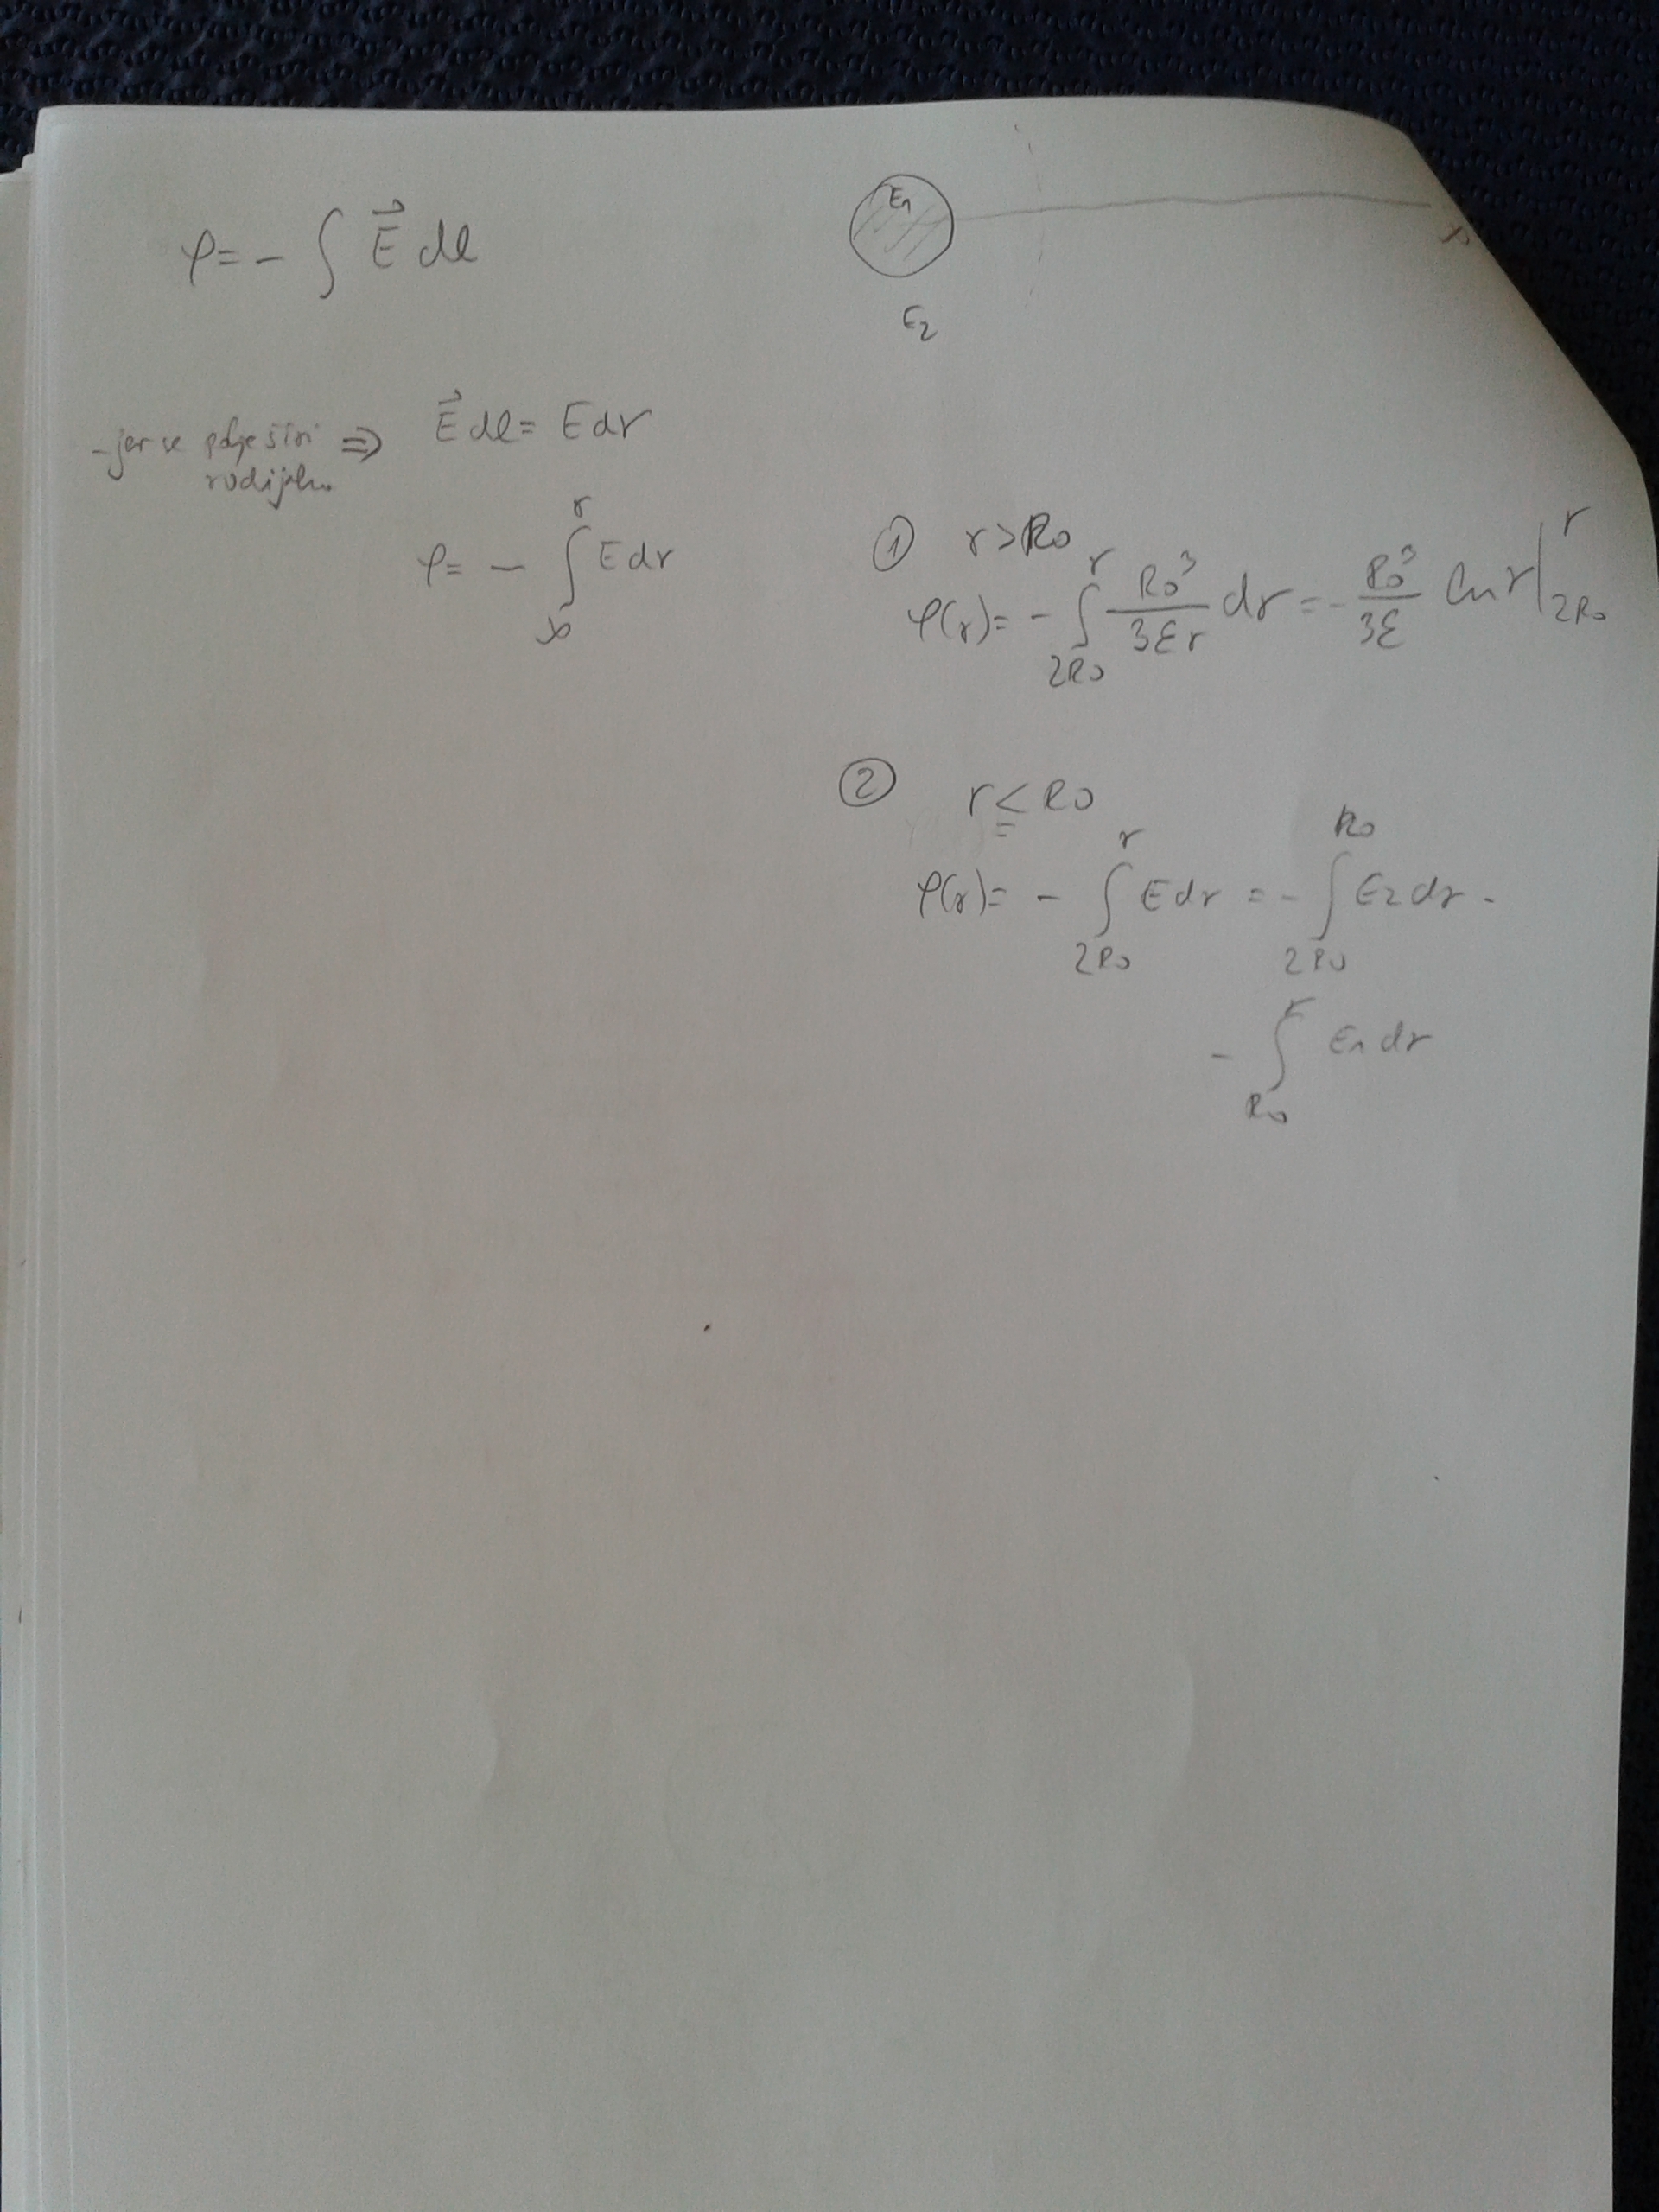 φ = - ∫ E⃗ dl
E₁
∞
E₂
- jer se polje širi ⇒ E⃗ dl = E dr
radijalno
φ = - ∫_∞^r E dr
① r > R₀
φ(r) = - ∫_{2R₀}^r R₀³/(3εr) dr = - R₀³/(3ε) ln r |_{2R₀}^r
② r ≤ R₀
φ(r) = - ∫_{2R₀}^r E dr = - ∫_{2R₀}^{R₀} E₂ dr -
- ∫_{R₀}^r E₁ dr